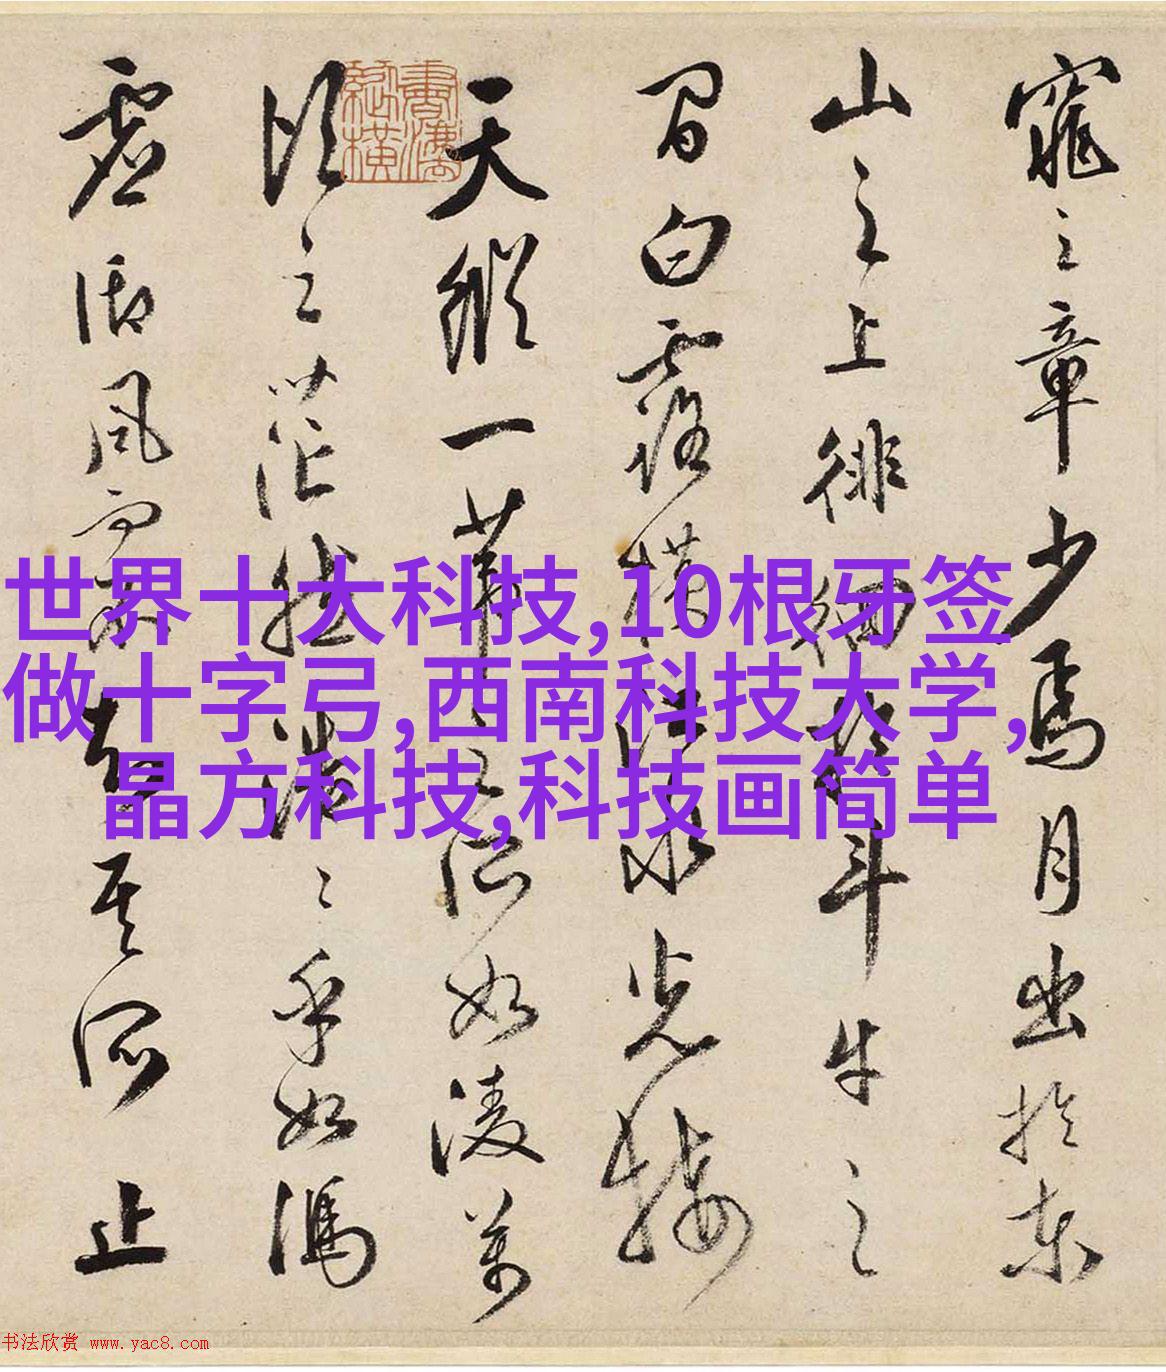 窕之章少焉月出於東
山之上徘徊於斗牛之
間白露橫江水光接
天縱一葦之所如凌萬
頃之茫然浩〻乎如馮
虛御風而不知其所止
世界十大科技,10根牙签
做十字弓,西南科技大学,
晶方科技,科技画简单
书法欣赏 www.yac8.com